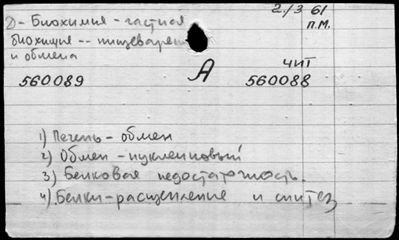 Д- Биохимия - частная 2/3 61
биохимия -- пищеварен П.М.
и обмена ЧИТ
560089 А 560088
1) Печень - обмен
2) Обмен - нуклеиновый
3) Белковая недостаточность.
4) Белки - расщепление и синтез